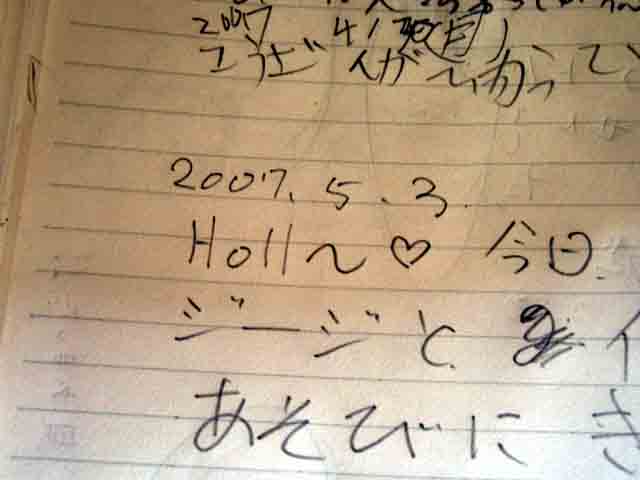 2007 4/30(月)
こうじ んが〜いわって
2007. 5. 3.
Holl〜♡ 今日
ジージと 2 イ
あそびに き